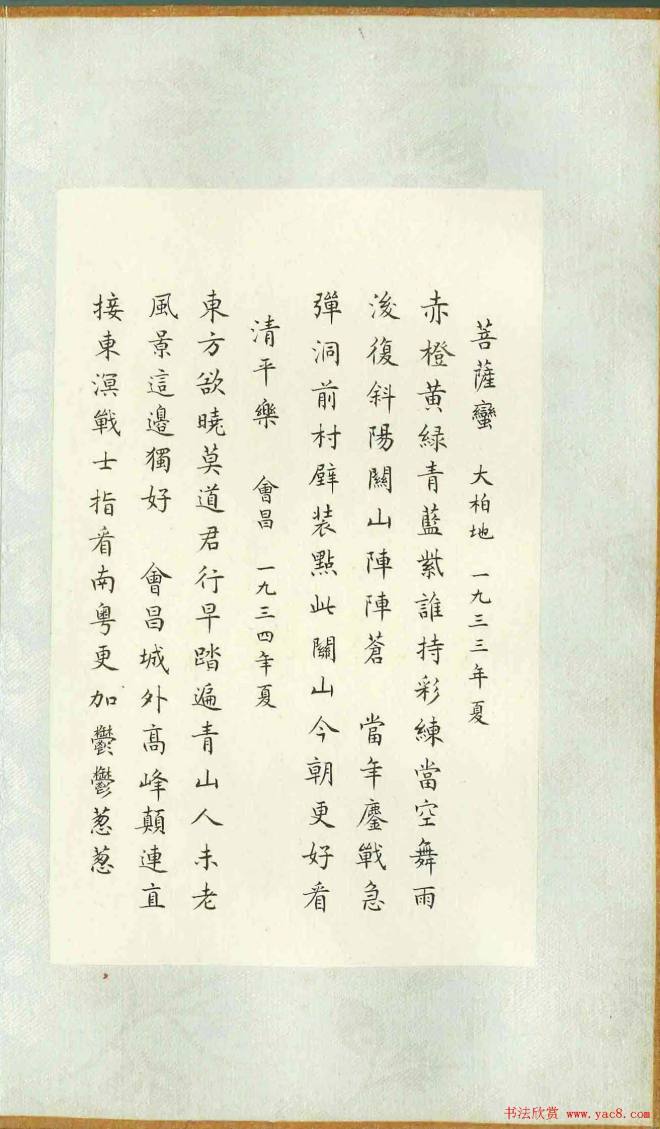 菩薩蠻 大柏地 一九三三年夏
赤橙黃綠青藍紫誰持彩練當空舞雨
後復斜陽關山陣陣蒼 當年鏖戰急
彈洞前村壁裝點此關山今朝更好看
清平樂 會昌 一九三四年夏
東方欲曉莫道君行早踏遍青山人未老
風景這邊獨好 會昌城外高峰顛連直
接東溟戰士指看南粵更加鬱鬱葱葱
书法欣赏 www.yac8.com